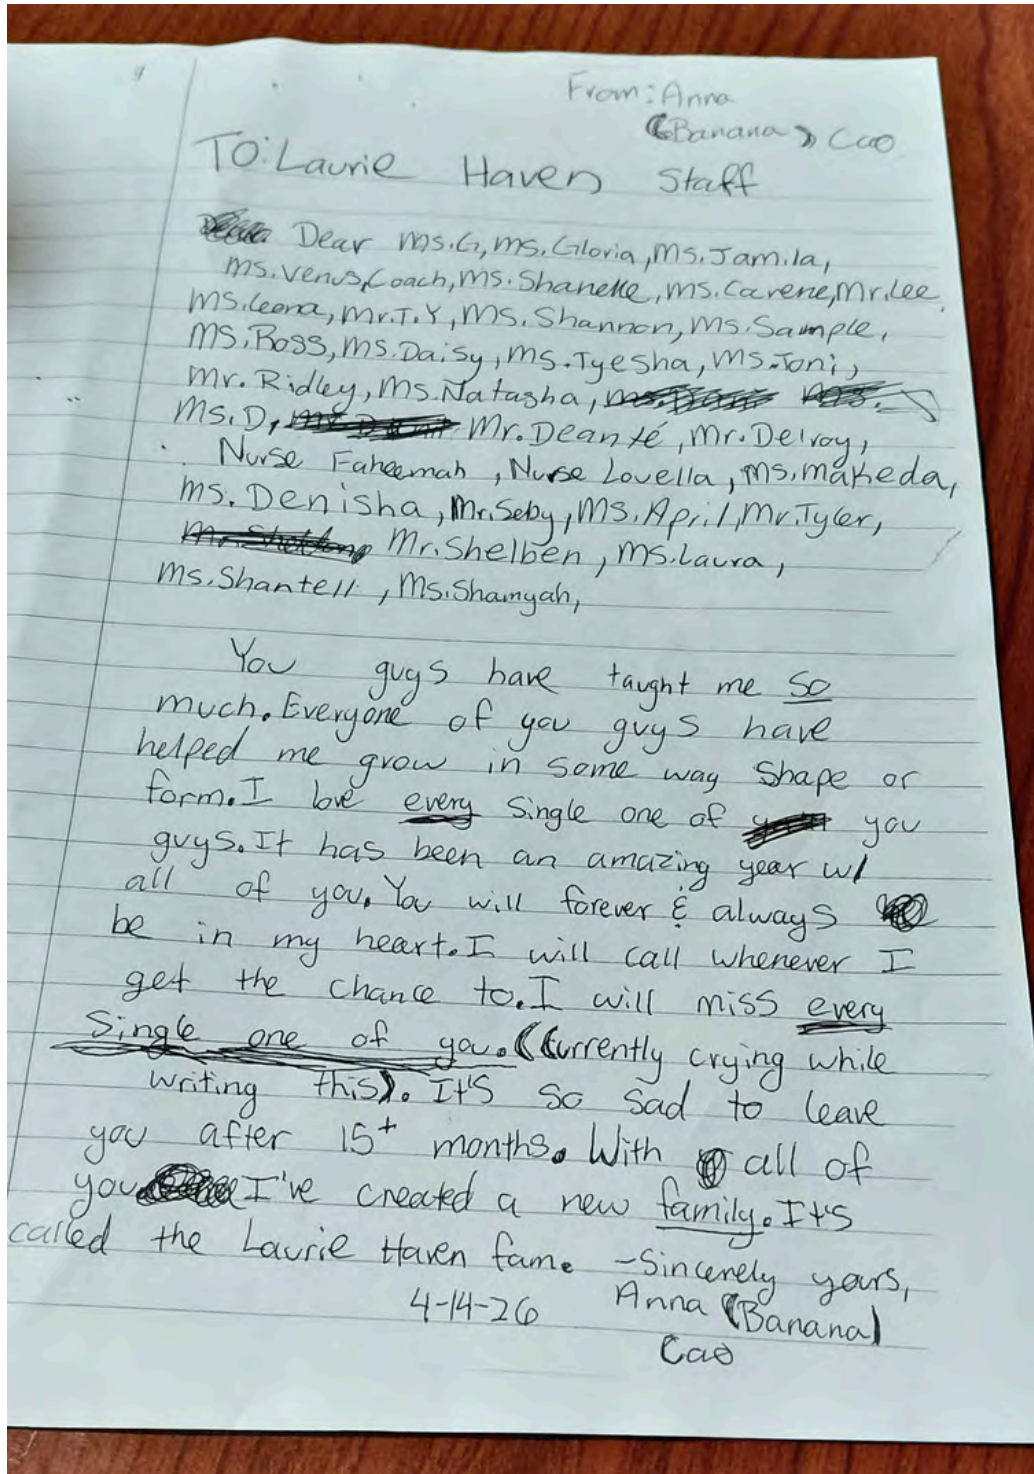 From: Anna
(Banana) Cao
To: Laurie Haven Staff
Dear Ms. G, Ms. Gloria, Ms. Jamila,
Ms. Venus, Coach, Ms. Shaneke, Ms. Carene, Mr. Lee,
Ms. Leona, Mr. T.Y, Ms. Shannon, Ms. Sample,
Ms. Ross, Ms. Daisy, Ms. Tyesha, Ms. Toni,
Mr. Ridley, Ms. Natasha,
Ms. D, Mr. Deanté, Mr. Delroy,
Nurse Faheemah, Nurse Lovella, Ms. Makeda,
Ms. Denisha, Mr. Seby, Ms. April, Mr. Tyler,
Mr. Shelben, Ms. Laura,
Ms. Shantell, Ms. Shamyah,
You guys have taught me so
much. Everyone of you guys have
helped me grow in some way shape or
form. I love every single one of you
guys. It has been an amazing year w/
all of you. You will forever & always
be in my heart. I will call whenever I
get the chance to. I will miss every
single one of you. (Currently crying while
writing this). It's so sad to leave
you after 15+ months. With all of
you I've created a new family. It's
called the Laurie Haven fam. -Sincerely yours,
4-14-26 Anna (Banana)
Cao